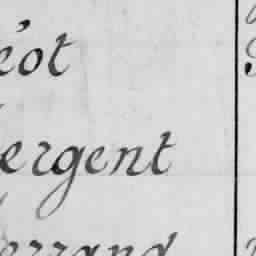 éot
ergent
errand